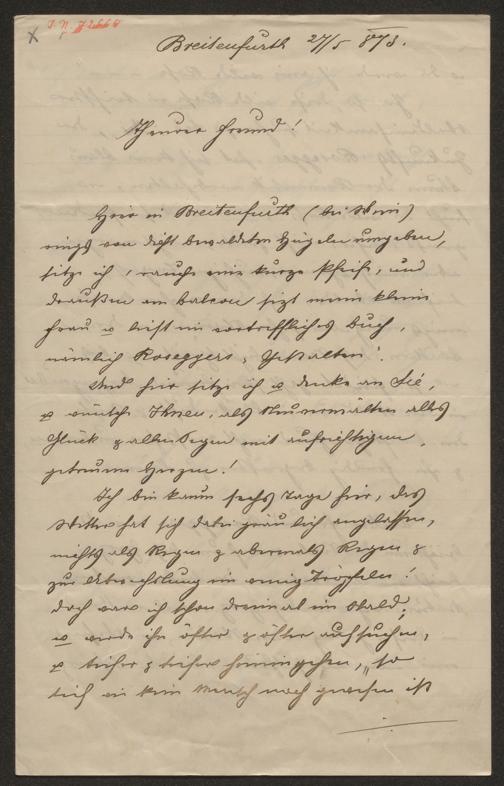 I. N. 72664
x
Breitenfurth 27/5 873.
Theurer Freund!
Hier in Breitenfurth (bei Wien)
rings von dicht bewaldeten Hügeln umgeben,
sitze ich, rauche eine kurze Pfeife, und
draußen am balcon sizt meine kleine
Frau u liest ein vortreffliches Buch,
nämlich Roseggers „Gestalten".
Und hier sitze ich u denke an Sie,
u wünsche Ihnen, als Neuvermälten alles
Glück & allen Segen mit aufrichtigem,
getreuem Herzen!
Ich bin kaum sechs Tage hier, das
Wetter hat sich dabei gräulich angelassen,
nichts als Regen & abermals Regen &
zur Abwechslung ein wenig Tröpfeln!
doch war ich schon dreimal im Wald,
u werde ihn öfter & öfter aufsuchen,
u tiefer & tiefer hineingehen, „so
tief wie kein Mensch noch gewesen ist